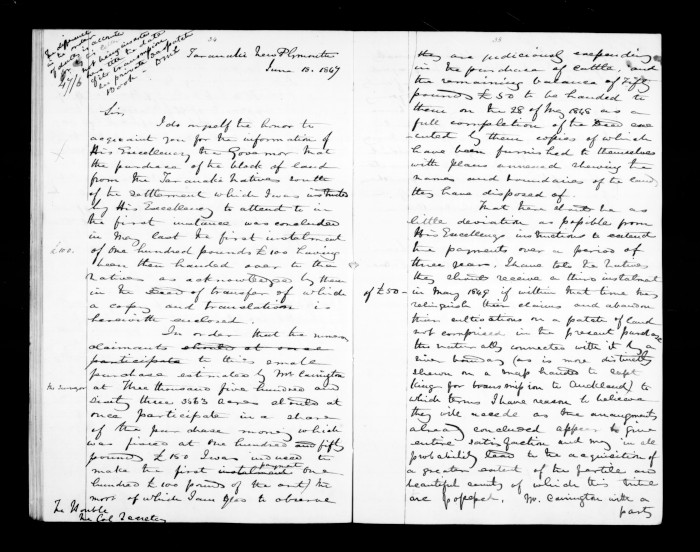 34
Taranaki New Plymouth
June 15. 1847
The difference
in the order
of date is accounted
for
not being inserted
until the date
of its transmission
in private Despatch
Book - DMcL
47/6
Sir,
I do myself the honor to
acquaint you for the information of
His Excellency the Governor that
the purchase of the block of land
from the Taranaki Natives south
of the settlement which I was instructed
by His Excellency to attend to in
the first instance was concluded
in May last the first instalment
£100.
of One hundred pounds £100 having
been then handed over to the
Natives as acknowledged by them
in the Deed of transfer of which
a copy and translation is
herewith enclosed.
In order that the numerous
claimants should at once
participate to this small
purchase estimated by Mr Carrington
the Surveyor
at Three thousand five hundred and
sixty three 3563 acres should at
once participate in a share
of the purchase money which
was fixed at One hundred and fifty
pounds £150 I was induced to
make the first instalment payment One
hundred £100 pounds of the amt, the
most of which I am glad to observe
The Honble
The Col Secretary
35
they are judiciously expending
in the purchase of cattle and
the remaining balance of Fifty
pounds £50 to be handed to
them on the 28 of May 1848 as a
full completion of the Deed exe-
cuted by them copies of which
have been furnished to themselves
with plans annexed shewing the
names and boundaries of the land
they have disposed of.
That there should be as
little deviation as possible from
His Excellency's instructions to extend
the payments over a period of
three years, I have told the Natives
they should receive a third instalment
of £50 -
in May 1849 if within that time they
relinquish their claims and abandon
their cultivations on a patch of land
not comprised in the present purchase
tho naturally connected with it by a
river boundary (as is more distinctly
shewn on a map handed to Capt
King for transmission to Auckland) to
which terms I have reason to believe
they will accede as the arrangements
already concluded appear to give
entire satisfaction and may in all
probability lead to the acquisition of
a greater extent of the fertile and
beautiful country of which this tribe
are possessed. Mr. Carrington with a
party